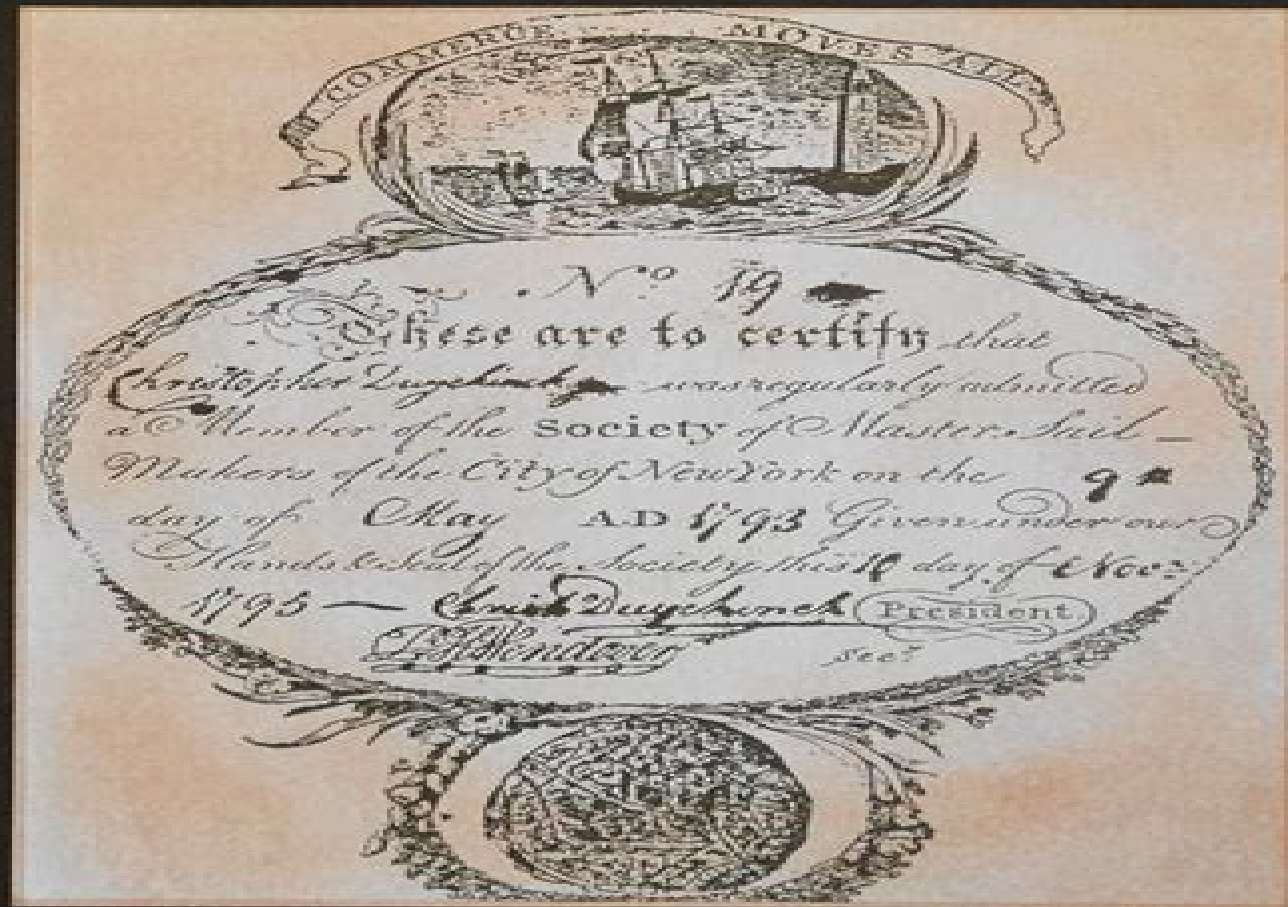 COMMERCE MOVES ALL
No 19
These are to certify that
Christopher Duychinck was regularly admitted
a Member of the Society of Master Sail-
Makers of the City of New York on the 9th
day of May A.D 1793 Given under our
Hands & Seal of the Society this day of Novr
1795 — Duychinck President
Wendover Secy